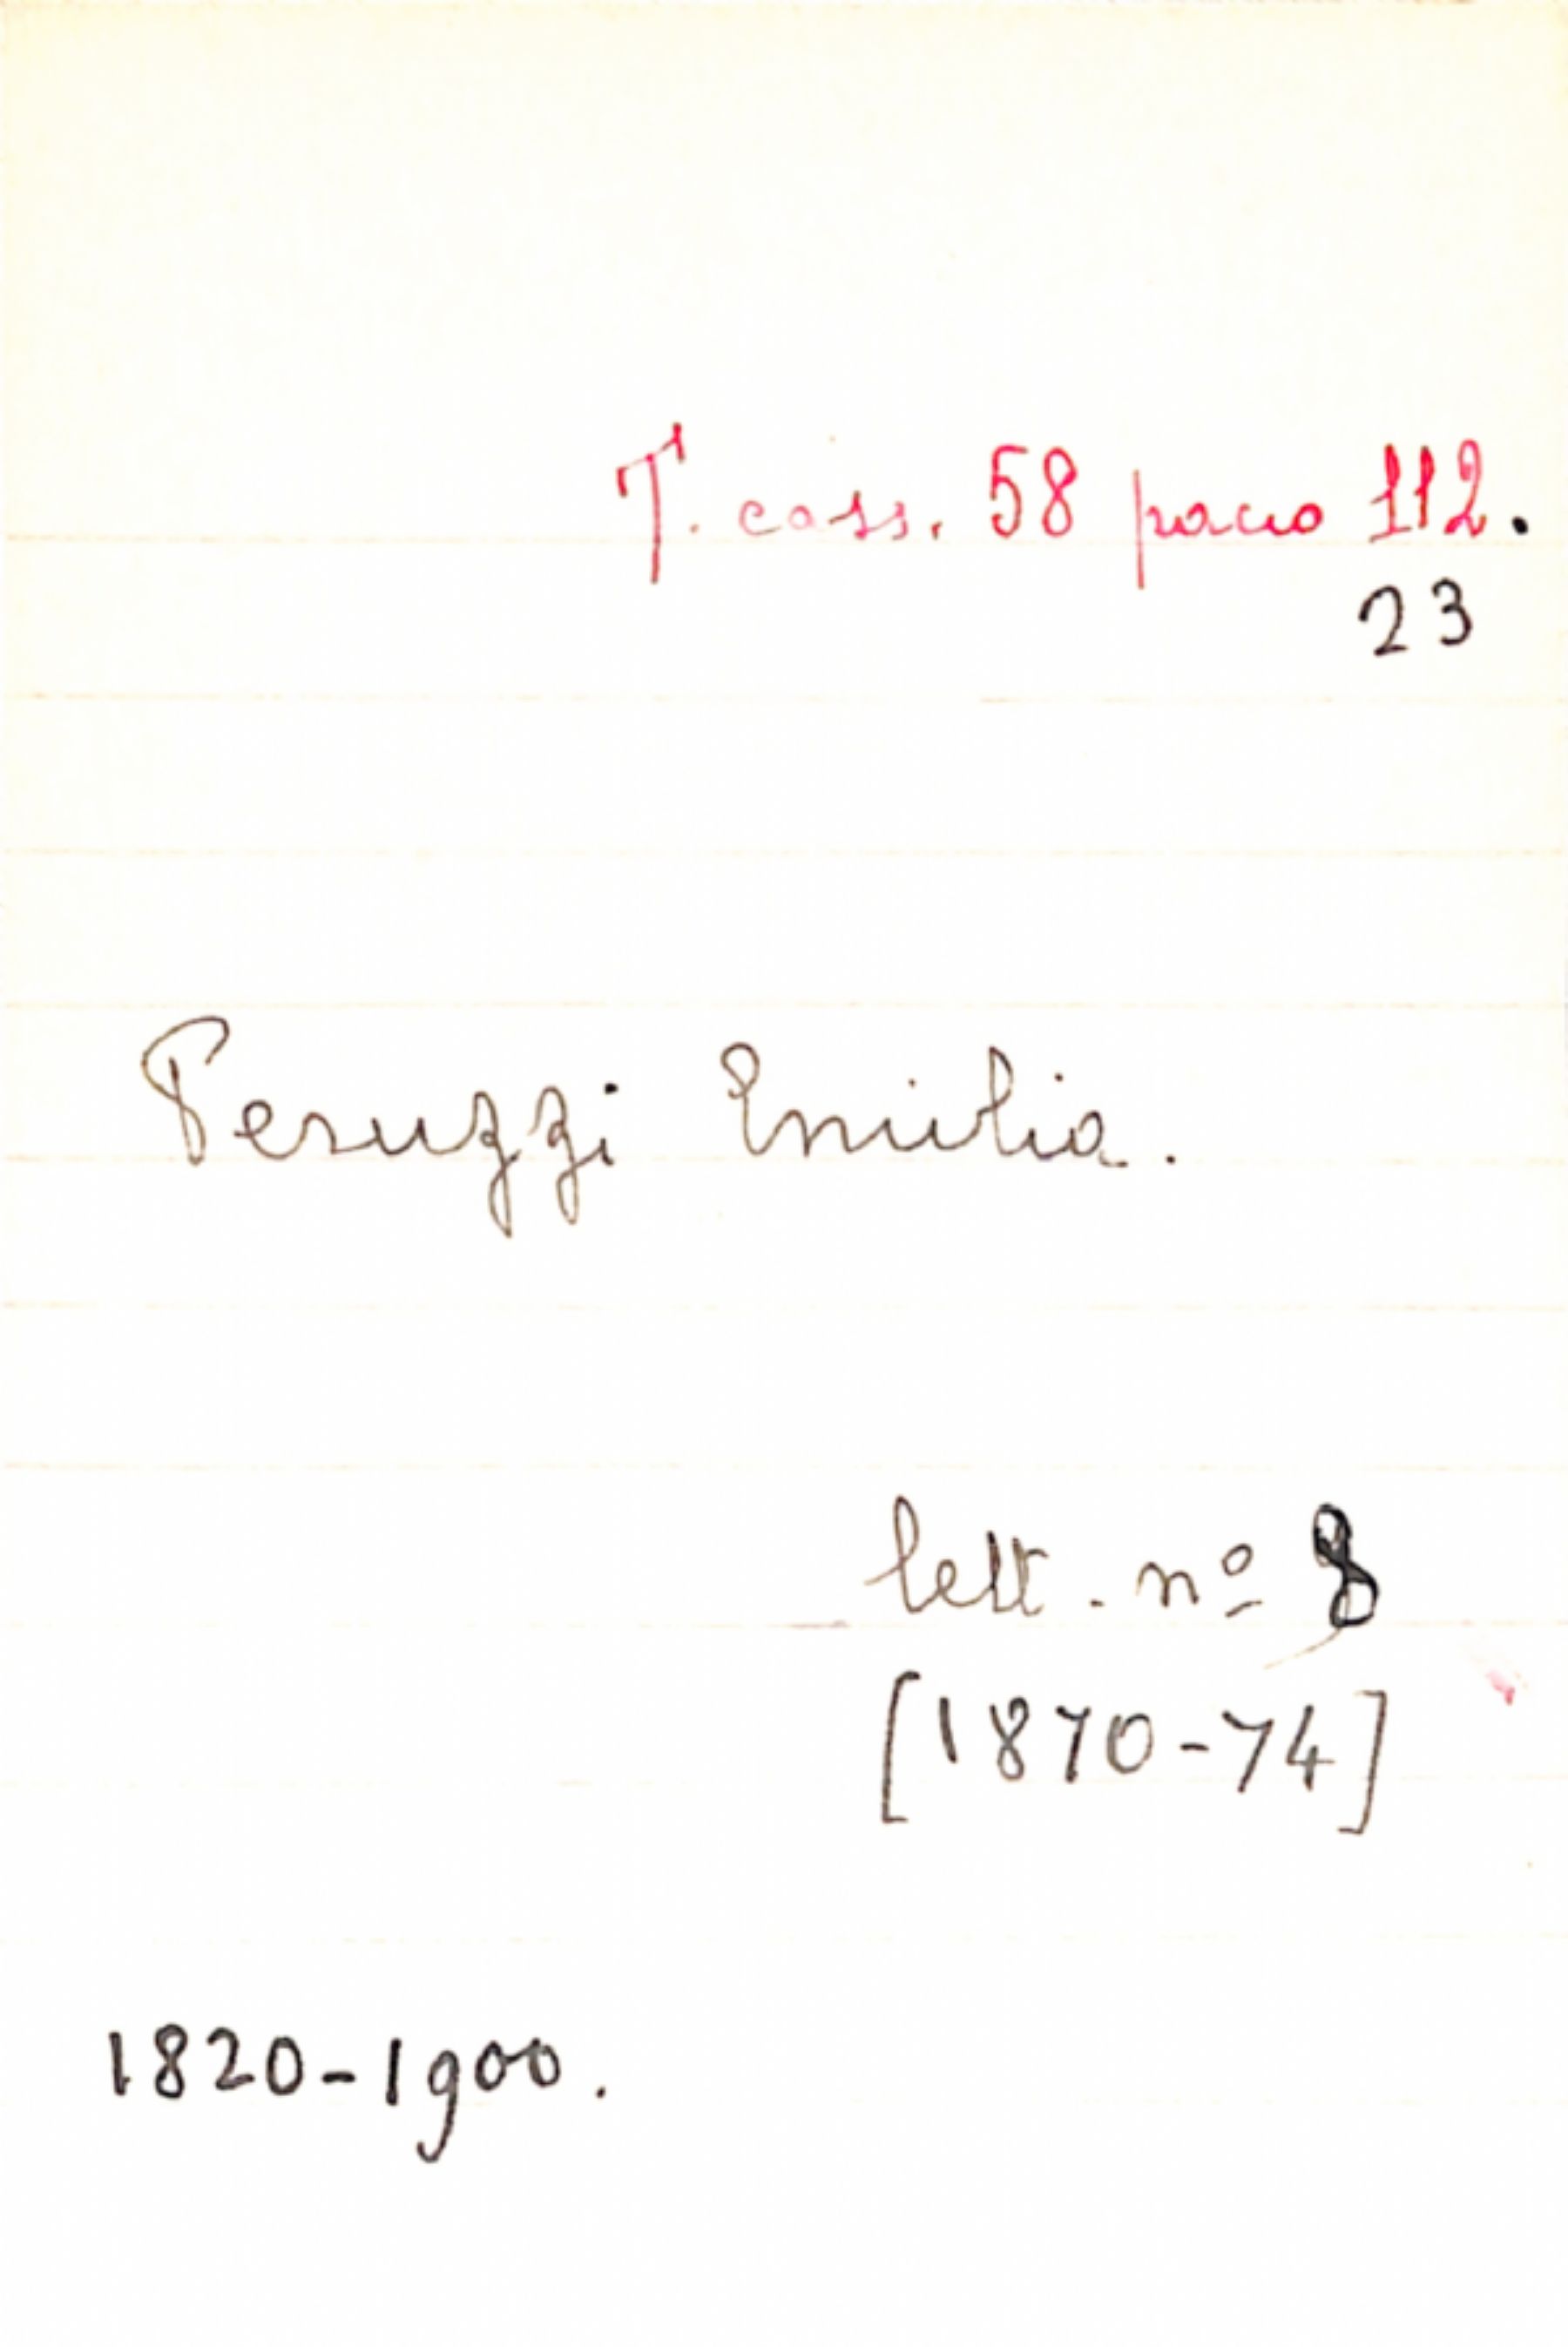 T. cass. 58 pacco 112.
23
Peruzzi Emilia.
lett. nº 8
[1870-74]
1820-1900.